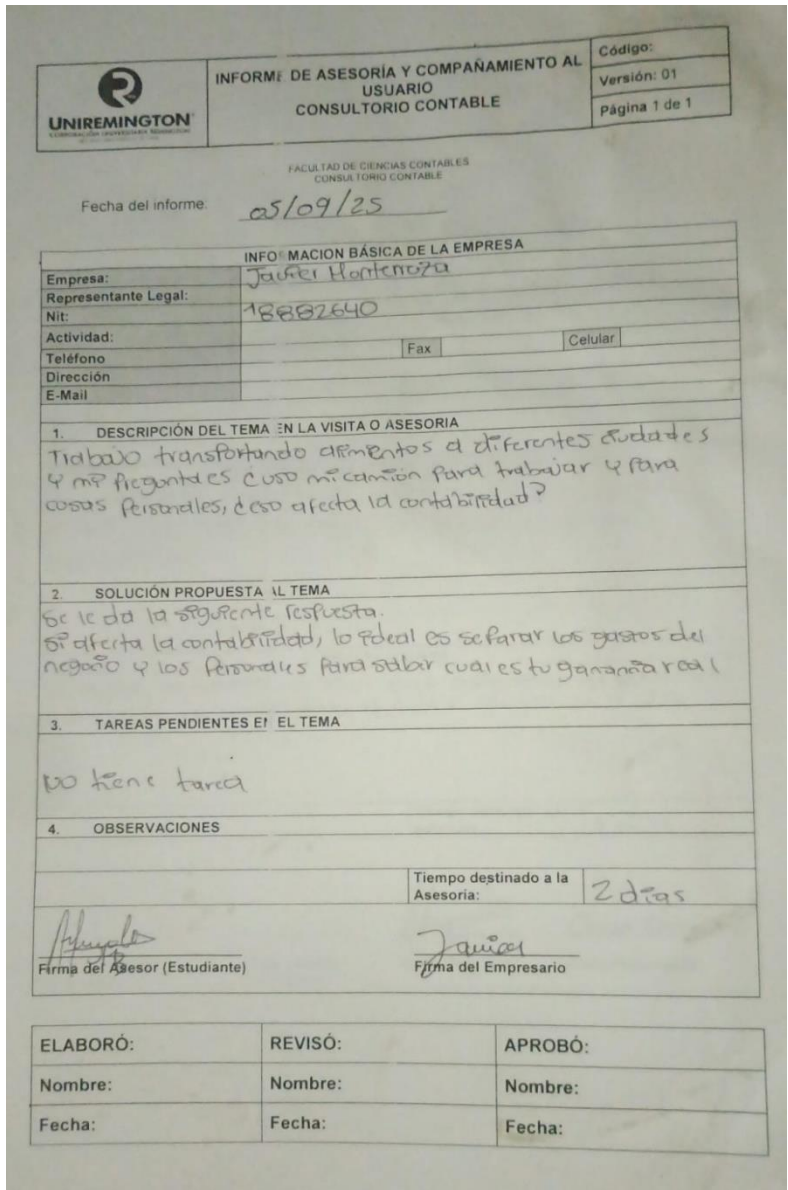 UNIREMINGTON
CORPORACIÓN UNIVERSITARIA REMINGTON
INFORME DE ASESORÍA Y COMPAÑAMIENTO AL
USUARIO
CONSULTORIO CONTABLE
Código:
Versión: 01
Página 1 de 1
FACULTAD DE CIENCIAS CONTABLES
CONSULTORIO CONTABLE
Fecha del informe. 05/09/25
INFO MACION BÁSICA DE LA EMPRESA
Empresa: Javier Monterroza
Representante Legal:
Nit: 18882640
Actividad:
Teléfono Fax Celular
Dirección
E-Mail
1. DESCRIPCIÓN DEL TEMA EN LA VISITA O ASESORIA
Trabajo transportando alimentos a diferentes ciudades
y mi pregunta es ¿uso mi camión para trabajar y para
cosas personales, ¿eso afecta la contabilidad?
2. SOLUCIÓN PROPUESTA AL TEMA
se le da la siguiente respuesta.
si afecta la contabilidad, lo ideal es separar los gastos del
negocio y los personales para saber cual es tu ganancia real
3. TAREAS PENDIENTES EN EL TEMA
No tiene tarea
4. OBSERVACIONES
Tiempo destinado a la
Asesoria: 2 días
Javier
Firma del Asesor (Estudiante) Firma del Empresario
ELABORÓ: REVISÓ: APROBÓ:
Nombre: Nombre: Nombre:
Fecha: Fecha: Fecha: